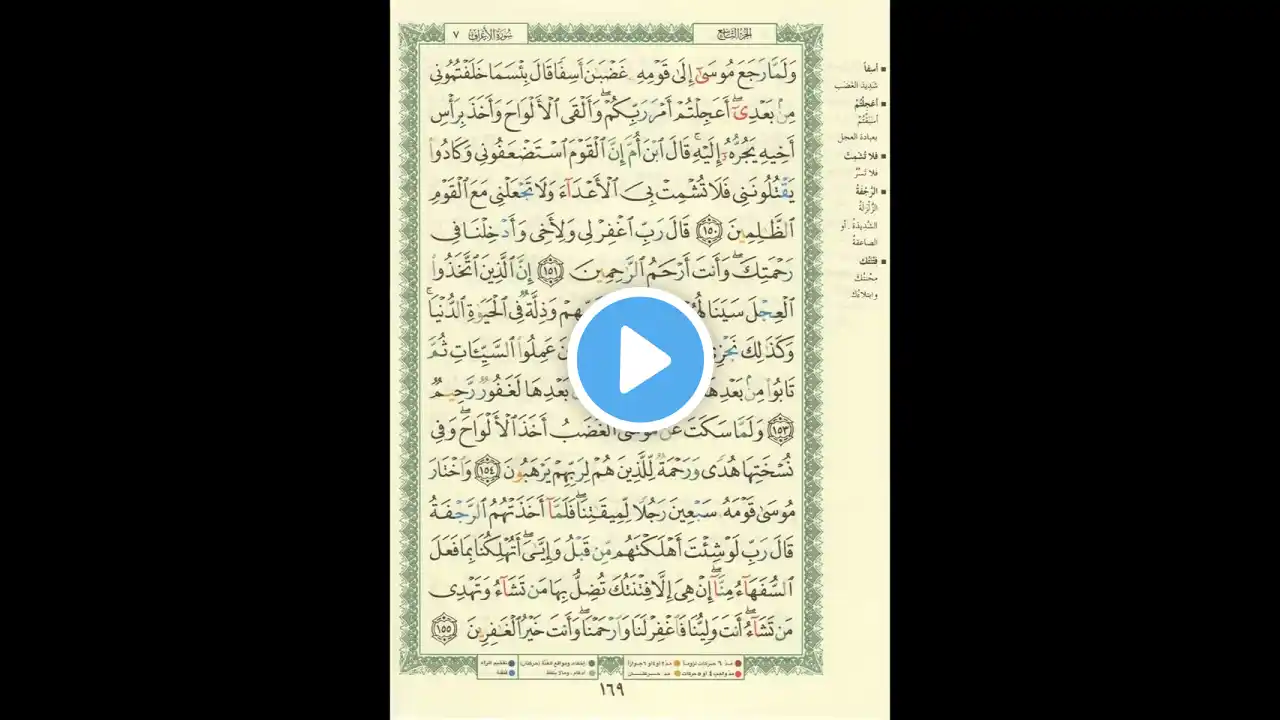 الجزء التاسع
سورة الأعراف ٧
وَلَمَّا رَجَعَ مُوسَىٰٓ إِلَىٰ قَوْمِهِۦ غَضْبَٰنَ أَسِفًا قَالَ بِئْسَمَا خَلَفْتُمُونِى
مِنۢ بَعْدِىٓ ۖ أَعَجِلْتُمْ أَمْرَ رَبِّكُمْ ۖ وَأَلْقَى ٱلْأَلْوَاحَ وَأَخَذَ بِرَأْسِ
أَخِيهِ يَجُرُّهُۥٓ إِلَيْهِ ۚ قَالَ ٱبْنَ أُمَّ إِنَّ ٱلْقَوْمَ ٱسْتَضْعَفُونِى وَكَادُوا۟
يَقْتُلُونَنِى فَلَا تُشْمِتْ بِىَ ٱلْأَعْدَآءَ وَلَا تَجْعَلْنِى مَعَ ٱلْقَوْمِ
ٱلظَّٰلِمِينَ ١٥٠ قَالَ رَبِّ ٱغْفِرْ لِى وَلِأَخِى وَأَدْخِلْنَا فِى
رَحْمَتِكَ ۖ وَأَنتَ أَرْحَمُ ٱلرَّٰحِمِينَ ١٥١ إِنَّ ٱلَّذِينَ ٱتَّخَذُوا۟
ٱلْعِجْلَ سَيَنَالُهُمْ وَذِلَّةٌ فِى ٱلْحَيَوٰةِ ٱلدُّنْيَا ۚ
وَكَذَٰلِكَ نَجْزِى عَمِلُوا۟ ٱلسَّيِّـَٔاتِ ثُمَّ
تَابُوا۟ مِنۢ بَعْدِهَا بَعْدِهَا لَغَفُورٌ رَّحِيمٌ
١٥٣ وَلَمَّا سَكَتَ عَن مُّوسَى ٱلْغَضَبُ أَخَذَ ٱلْأَلْوَاحَ ۖ وَفِى
نُسْخَتِهَا هُدًى وَرَحْمَةٌ لِّلَّذِينَ هُمْ لِرَبِّهِمْ يَرْهَبُونَ ١٥٤ وَٱخْتَارَ
مُوسَىٰ قَوْمَهُۥ سَبْعِينَ رَجُلًا لِّمِيقَٰتِنَا ۖ فَلَمَّآ أَخَذَتْهُمُ ٱلرَّجْفَةُ
قَالَ رَبِّ لَوْ شِئْتَ أَهْلَكْتَهُم مِّن قَبْلُ وَإِيَّٰىَ ۖ أَتُهْلِكُنَا بِمَا فَعَلَ
ٱلسُّفَهَآءُ مِنَّآ ۖ إِنْ هِىَ إِلَّا فِتْنَتُكَ تُضِلُّ بِهَا مَن تَشَآءُ وَتَهْدِى
مَن تَشَآءُ ۖ أَنتَ وَلِيُّنَا فَٱغْفِرْ لَنَا وَٱرْحَمْنَا ۖ وَأَنتَ خَيْرُ ٱلْغَٰفِرِينَ ١٥٥
أسِفاً
شديد الغضب
أعَجِلْتُمْ
أسبقتم
بعبادة العجل
فلا تُشْمِتْ
فلا تسُرّ
الرَّجْفةُ
الزلزلة
الشديدة . أو
الصاعقة
فِتْنَتُكَ
محنتك
وابتلاؤك
مدّ ٦ حركات لزوماً
مدّ ٢ أو ٤ أو ٦ جوازاً
إخفاء، ومواقع الغنّة (حركتان)
تفخيم الراء
مدّ واجب ٤ أو ٥ حركات
مدّ حركتان
إدغام، وما لا يلفظ
قلقلة
١٦٩